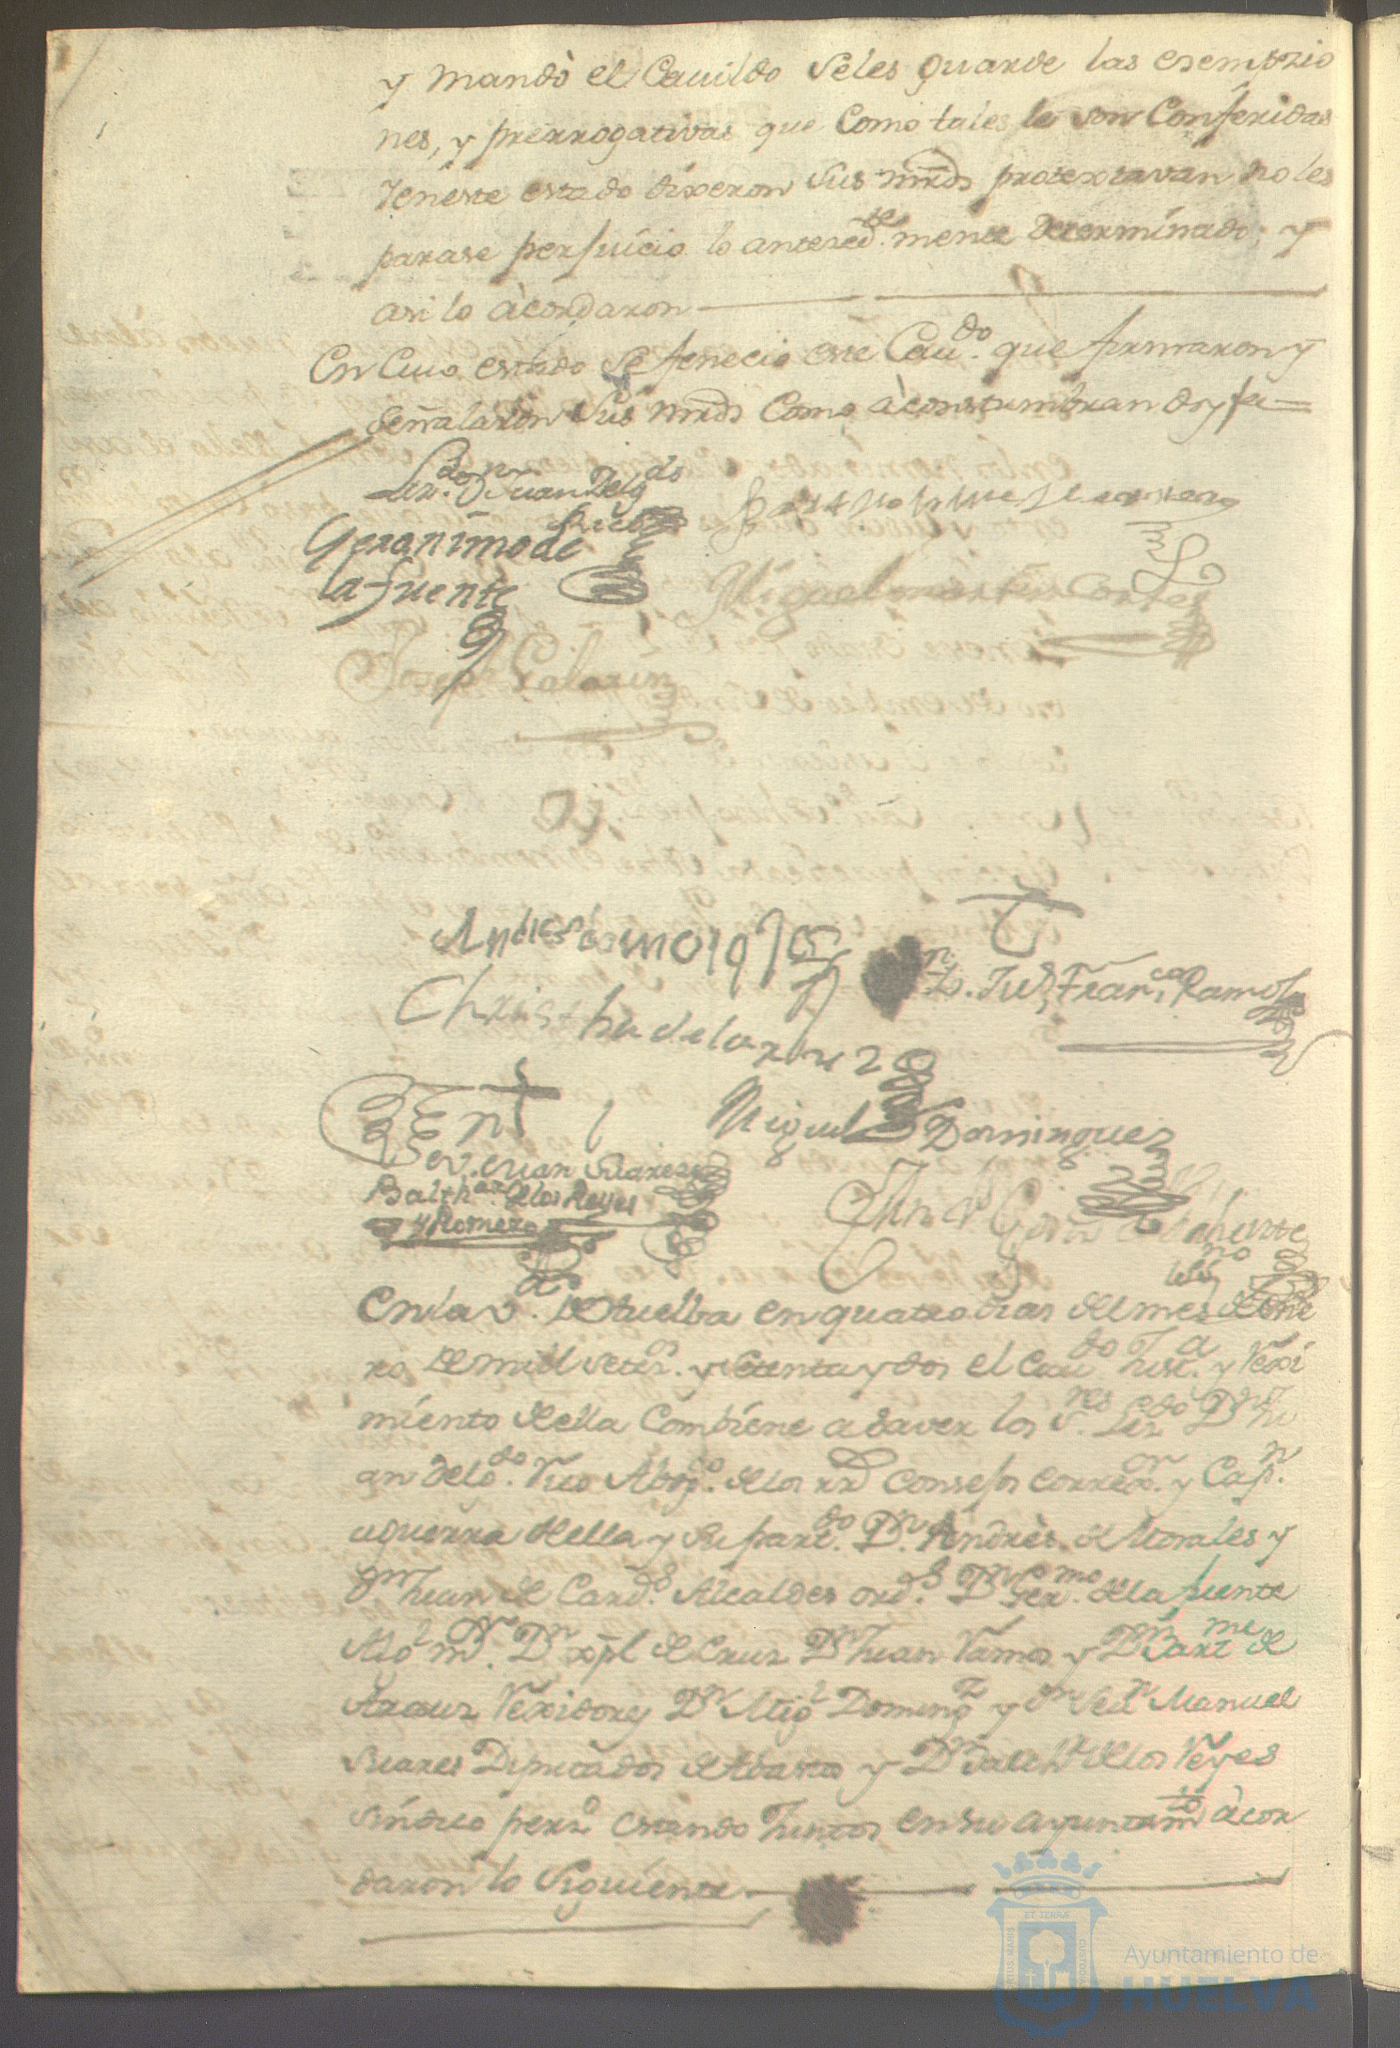 y mandò el Cavildo seles guarde las esempzio
nes, y prerrogativas que como tales le son Conferidas
Yeneste estado dixeron sus mrds protextavan no les
parase perjuicio lo anteredte. mente determinado; y
asi lo àcordaron
En Cuio estado se fenecio este Cavdo. que firmaron y
señalaron sus mrds Como àconstumbran doy fee
Lizdo. Dn Juan Delgdo
Rico
Geronimo de
la fuente
Miguel martin Cortes
Joseph
Andres de moralez
Dn. Jua Franco Ramos
Christhl de la cruz
Miguel Dominguez
Ent
Ber. Juan Suares
Balthar de los Reyes
y Romero
essno
En la va. de Huelba en quatro dias del mes de ene
ro de mill setezs. y setenta y dos el Cavdo Justa. y Rexi
miento della Combiene a saver los Sres. Lizdo Dn Ju
an Delgdo. Rico Abogdo. de los rrs Consejos Correxor. y Capn.
a guerra della y su partdo. Dn. Andrès de Morales y
Dn Juan de Cardo. Alcaldes ords. Dn Germo. de la fuente
Algl mor. Dn xptl de Cruz Dn Juan Ramos y Dn Barme de
Araus Rexidores Dn Migl Domingz y Dn Manuel
Suares Diputados de Abastos y Dn Balthr de los Reyes
Sindico perso estando Juntos en su ayuntamto àcor
daron lo siguiente
Ayuntamiento de
HUELVA